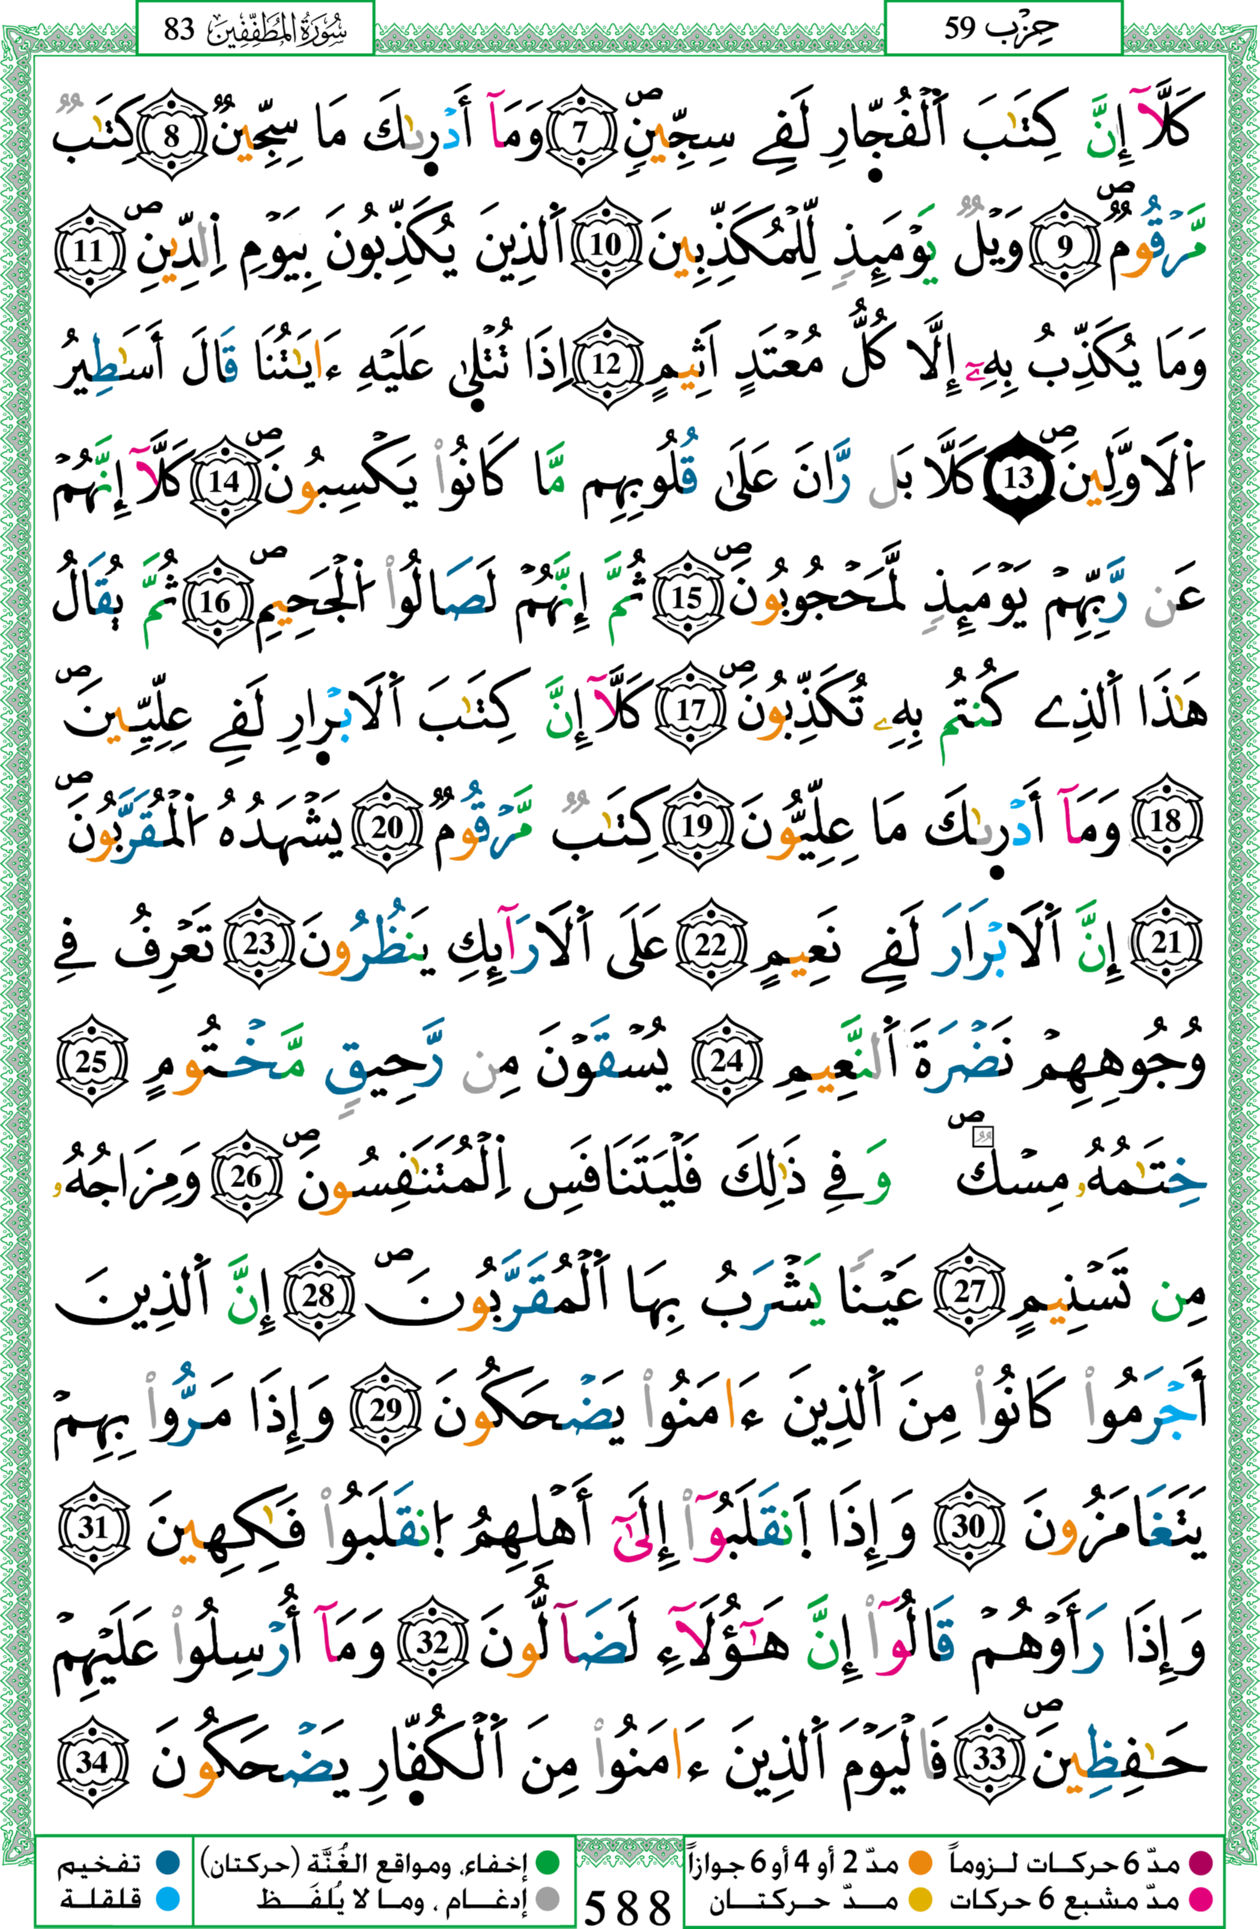 حِزْب 59
سُورَةُ المُطَفِّفِينَ 83
كَلَّآ إِنَّ كِتَٰبَ اَ۬لْفُجّ۪ارِ لَفِے سِجِّينٖۖ 7 وَمَآ أَدْر۪ىٰكَ مَا سِجِّينٞ 8 كِتَٰبٞ
مَّرْقُومٞۖ 9 وَيْلٞ يَوْمَئِذٖ لِّلْمُكَذِّبِينَ 10 اَ۬لذِينَ يُكَذِّبُونَ بِيَوْمِ اِ۬لدِّينِۖ 11
وَمَا يُكَذِّبُ بِهِۦٓ إِلَّا كُلُّ مُعْتَدٍ اَثِيمٍ 12 اِذَا تُتْل۪ىٰ عَلَيْهِ ءَايَٰتُنَا قَالَ أَسَٰطِيرُ
اُ۬لَاوَّلِينَۖ 13 كَلَّا بَل رَّانَ عَلَىٰ قُلُوبِهِم مَّا كَانُواْ يَكْسِبُونَۖ 14 كَلَّآ إِنَّهُمْ
عَن رَّبِّهِمْ يَوْمَئِذٖ لَّمَحْجُوبُونَۖ 15 ثُمَّ إِنَّهُمْ لَصَالُواْ اُ۬لْجَحِيمِۖ 16 ثُمَّ يُقَالُ
هَٰذَا اَ۬لذِے كُنتُم بِهِۦ تُكَذِّبُونَۖ 17 كَلَّآ إِنَّ كِتَٰبَ اَ۬لَابْر۪ارِ لَفِے عِلِّيِّينَۖ
18 وَمَآ أَدْر۪ىٰكَ مَا عِلِّيُّونَ 19 كِتَٰبٞ مَّرْقُومٞ 20 يَشْهَدُهُ اُ۬لْمُقَرَّبُونَۖ
21 إِنَّ اَ۬لَابْرَارَ لَفِے نَعِيمٍ 22 عَلَى اَ۬لَارَآئِكِ يَنظُرُونَ 23 تَعْرِفُ فِے
وُجُوهِهِمْ نَضْرَةَ اَ۬لنَّعِيمِ 24 يُسْقَوْنَ مِن رَّحِيقٖ مَّخْتُومٍ 25
خِتَٰمُهُۥ مِسْكٞۖ وَفِے ذَٰلِكَ فَلْيَتَنَافَسِ اِ۬لْمُتَنَٰفِسُونَۖ 26 وَمِزَاجُهُۥ
مِن تَسْنِيمٍ 27 عَيْناٗ يَشْرَبُ بِهَا اَ۬لْمُقَرَّبُونَۖ 28 إِنَّ اَ۬لذِينَ
أَجْرَمُواْ كَانُواْ مِنَ اَ۬لذِينَ ءَامَنُواْ يَضْحَكُونَ 29 وَإِذَا مَرُّواْ بِهِمْ
يَتَغَامَزُونَ 30 وَإِذَا اَ۪نقَلَبُوٓاْ إِلَىٰٓ أَهْلِهِمُ اُ۪نقَلَبُواْ فَٰكِهِينَ 31
وَإِذَا رَأَوْهُمْ قَالُوٓاْ إِنَّ هَٰٓؤُلَآءِ لَضَآلُّونَ 32 وَمَآ أُرْسِلُواْ عَلَيْهِمْ
حَٰفِظِينَۖ 33 فَالْيَوْمَ اَ۬لذِينَ ءَامَنُواْ مِنَ اَ۬لْكُفّ۪ارِ يَضْحَكُونَ 34
مدّ 6 حركات لـزوماً مدّ 2 أو 4 أو 6 جوازاً
مدّ مشبع 6 حركات مـدّ حـركتـان
588
إخفاء، ومواقع الغُنَّة (حركتان) تفخيم
إدغـام ، ومـا لا يُلفَـظ قلقلة